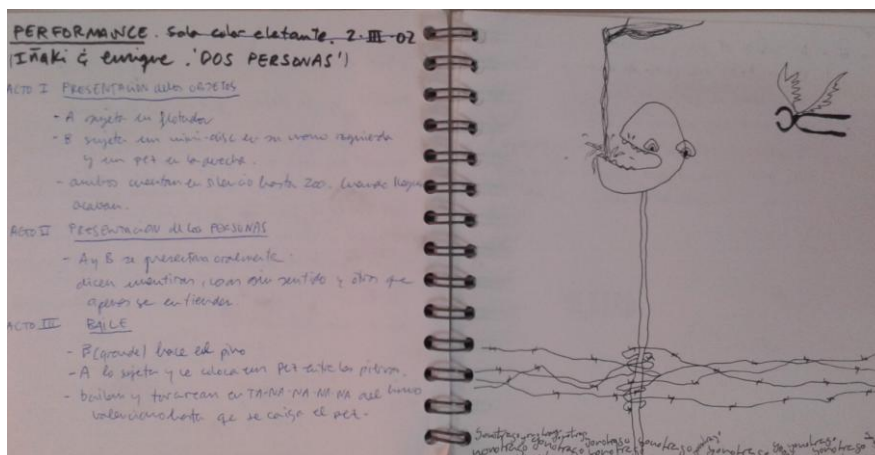 PERFORMANCE. Sala color elefante. 2-III-02
(Iñaki & Enrique. 'DOS PERSONAS')
ACTO I PRESENTACIÓN de los OBJETOS
- A sujeta un flotador
- B sujeta un mini-disc en su mano izquierda
y un pez en la derecha.
- ambos cuentan en silencio hasta 200. Cuando llegan
acaban.
ACTO II PRESENTACIÓN de las PERSONAS
- A y B se presentan oralmente.
dicen mentiras, cosas sin sentido y otras que
apenas se entienden.
ACTO III BAILE
- B (grande) hace el pino
- A lo sujeta y le coloca un pez entre las piernas.
- bailan y tararean en TA-NA-NA-NA-NA del himno
valenciano hasta que se caiga el pez.
yonotrago yonotrago yonotrago
yonotrago yonotrago yonotrago yonotrago yonotrago